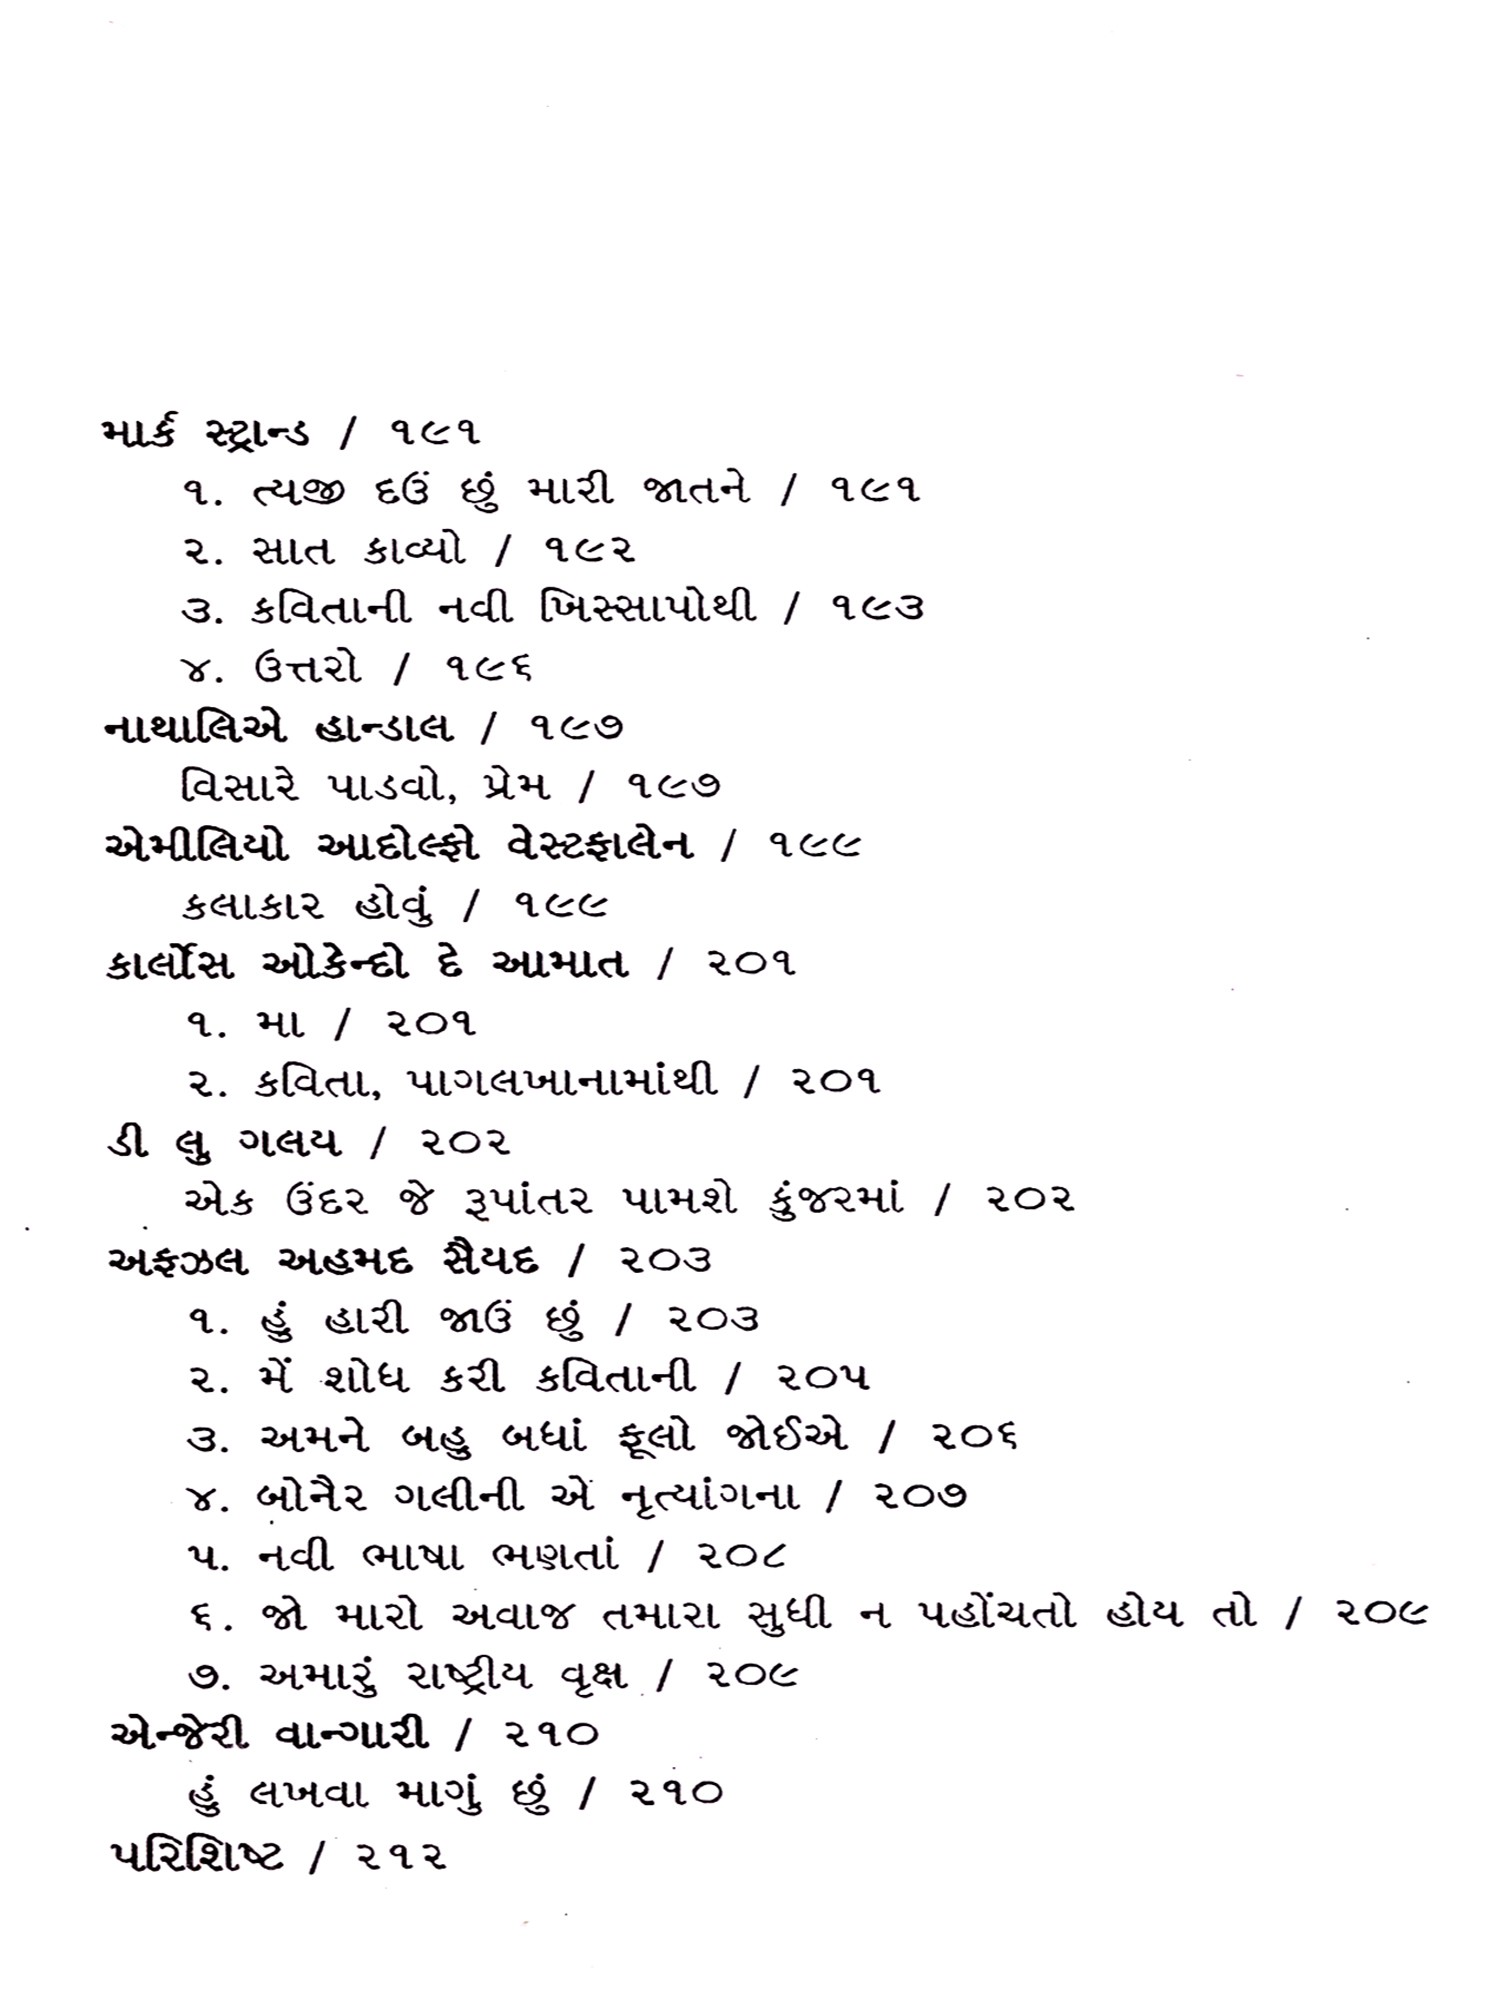 માર્ક સ્ટ્રાન્ડ / ૧૯૧
૧. ત્યજી દઉં છું મારી જાતને / ૧૯૧
૨. સાત કાવ્યો / ૧૯૨
૩. કવિતાની નવી ખિસ્સાપોથી / ૧૯૩
૪. ઉત્તરો / ૧૯૬
નાથાલિએ હાન્ડાલ / ૧૯૭
વિસારે પાડવો, પ્રેમ / ૧૯૭
એમીલિયો આદોલ્ફો વેસ્ટફાલેન / ૧૯૯
કલાકાર હોવું / ૧૯૯
કાર્લોસ ઓકેન્દો દે આમાત / ૨૦૧
૧. મા / ૨૦૧
૨. કવિતા, પાગલખાનામાંથી / ૨૦૧
ડી લુ ગલય / ૨૦૨
એક ઉંદર જે રૂપાંતર પામશે કુંજરમાં / ૨૦૨
અફઝલ અહમદ સૈયદ / ૨૦૩
૧. હું હારી જાઉં છું / ૨૦૩
૨. મેં શોધ કરી કવિતાની / ૨૦૫
૩. અમને બહુ બધાં ફૂલો જોઈએ / ૨૦૬
૪. બોનૈર ગલીની એ નૃત્યાંગના / ૨૦૭
૫. નવી ભાષા ભણતાં / ૨૦૮
૬. જો મારો અવાજ તમારા સુધી ન પહોંચતો હોય તો / ૨૦૯
૭. અમારું રાષ્ટ્રીય વૃક્ષ / ૨૦૯
એન્જેરી વાન્ગારી / ૨૧૦
હું લખવા માગું છું / ૨૧૦
પરિશિષ્ટ / ૨૧૨